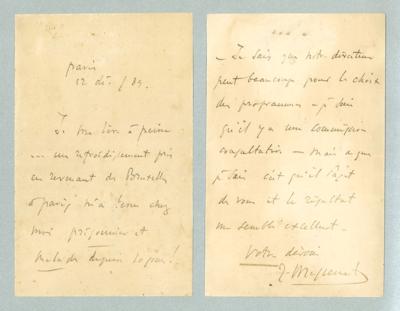 Paris
12 déc /89.
Je me lève à peine
... un refroidissement pris
en revenant de Bruxelles
à Paris m'a tenu chez
moi prisonnier et
malade depuis 10 jours!
— Je sais que notre directeur
peut beaucoup pour le choix
des programmes — je sais
qu'il y a une commission
consultative — mais ce que
je sais c'est qu'il s'agit
de vous et le résultat
me semble excellent —
Votre dévoué
J. Massenet